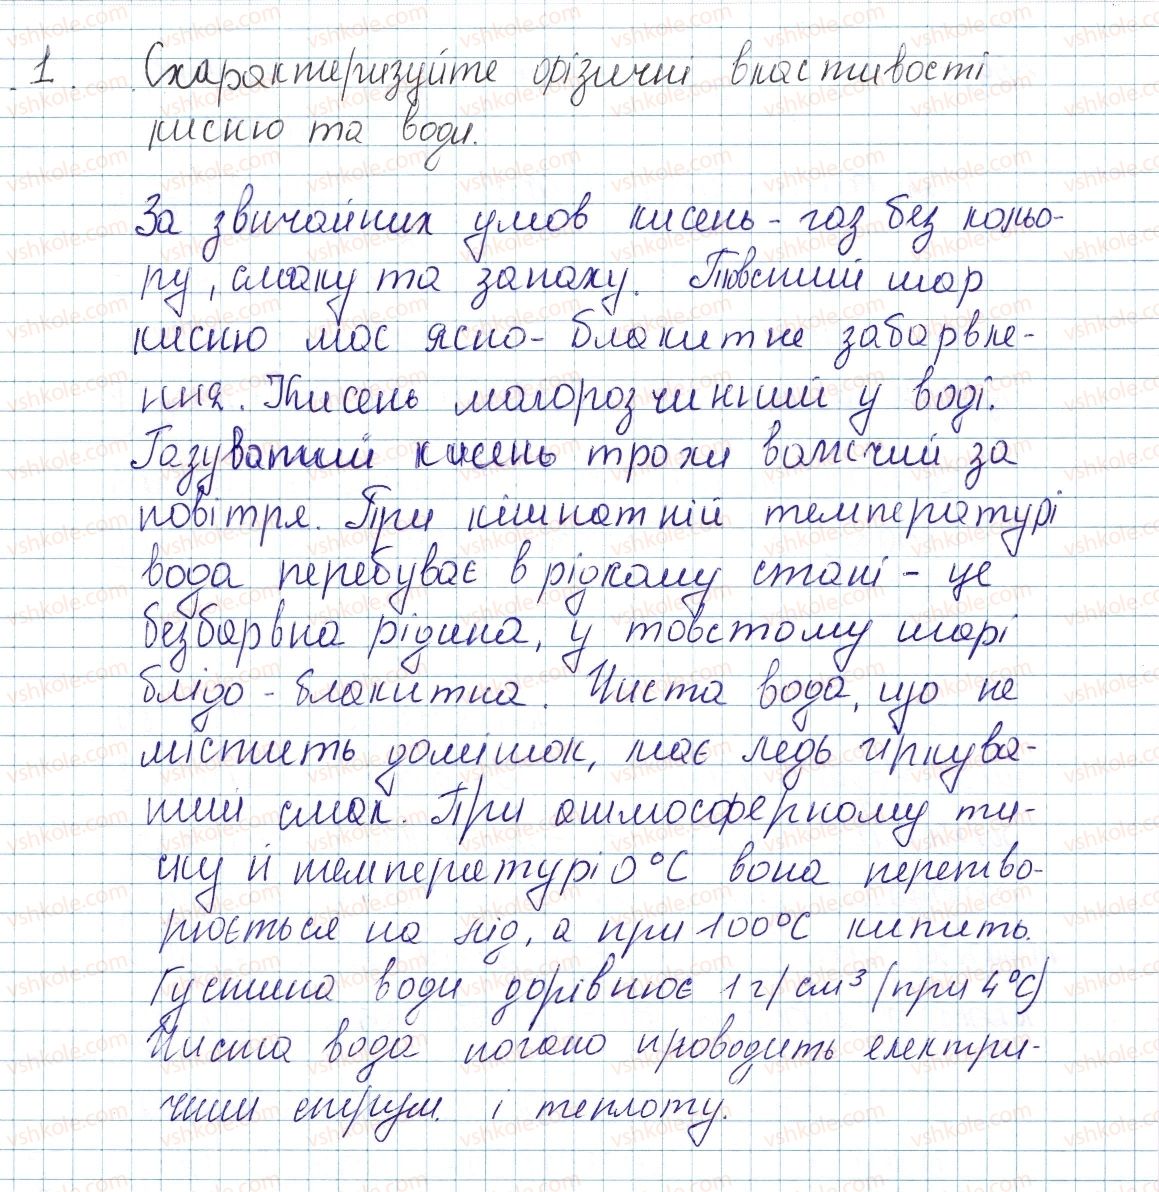 1. Схарактеризуйте фізичні властивості
кисню та води.
За звичайних умов кисень - газ без кольо-
ру, смаку та запаху. Товстий шар
кисню має ясно-блакитне забарвле-
ння. Кисень малорозчинний у воді.
Газуватий кисень трохи важчий за
повітря. При кімнатній температурі
вода перебуває в рідкому стані - це
безбарвна рідина, у товстому шарі
блідо-блакитна. Чиста вода, що не
містить домішок, має ледь гіркува-
тий смак. При атмосферному ти-
ску й температурі 0°С вона перетво-
рюється на лід, а при 100°С кипить.
Густина води дорівнює 1 г/см³ (при 4°С)
Чиста вода погано проводить електри-
чний струм і теплоту.